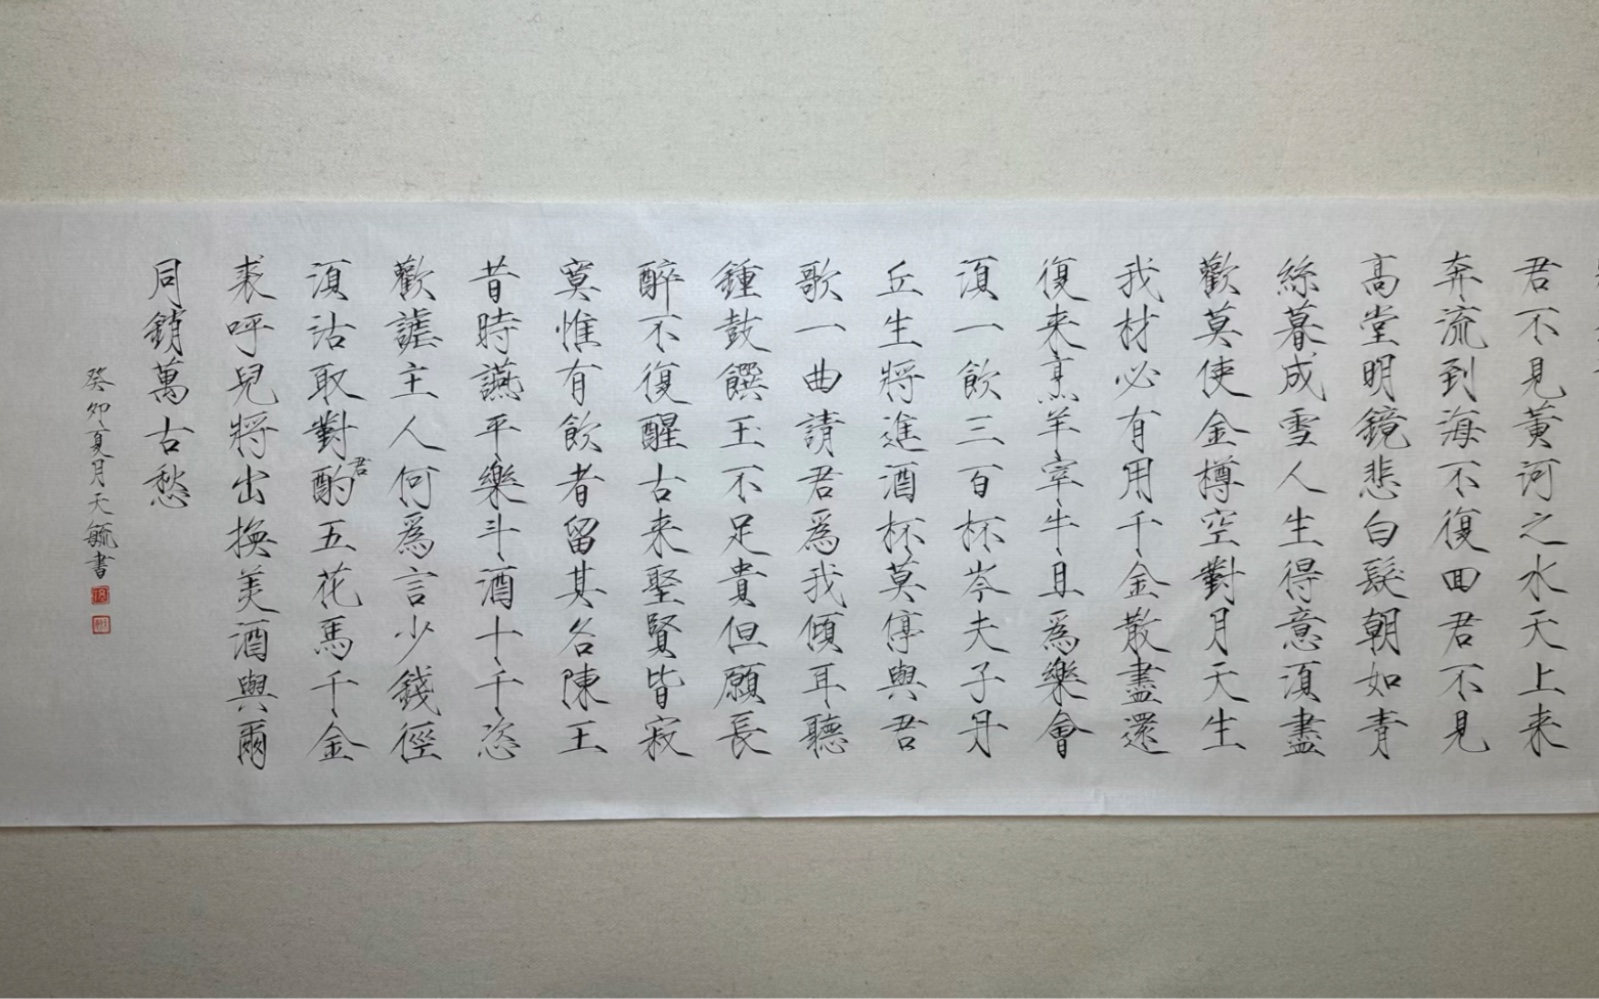 君不見黃河之水天上来
奔流到海不復回君不見
高堂明鏡悲白髮朝如青
絲暮成雪人生得意須盡
歡莫使金樽空對月天生
我材必有用千金散盡還
復来烹羊宰牛且爲樂會
須一飲三百杯岑夫子丹
丘生將進酒杯莫停與君
歌一曲請君爲我傾耳聽
鍾鼓饌玉不足貴但願長
醉不復醒古来聖賢皆寂
寞惟有飲者留其名陳王
昔時讌平樂斗酒十千恣
歡謔主人何爲言少錢徑
須沽取對君酌五花馬千金
裘呼兒將出換美酒與爾
同銷萬古愁
癸卯夏月天毓書